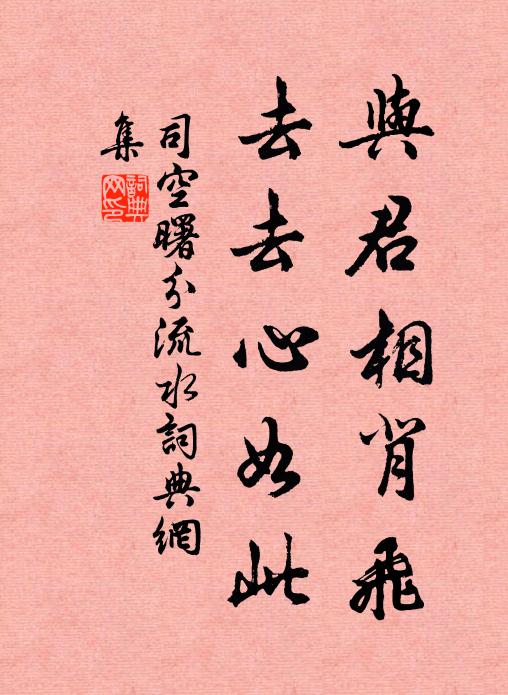 與君相背飛
去去心如此
司空曙分流水詞典網
集
詞典
网印